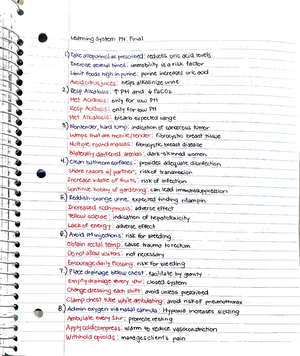 Learning System PN: Final
1) Take allopurinol as prescribed: reduces uric acid levels
Exercise several times: immobility is a risk factor
Limit foods high in purine: purine increases uric acid
Avoid citrus juices: helps alkalinize urine
2) Resp Alkalosis: ↑ PH and ↓ PaCO2
Met Acidosis: only for low PH
Resp Acidosis: only for low PH
Met Alkalosis: bicarb expected range
3) Nontender, hard lump: indication of cancerous tumor
Lumps that are mobile/tender: fibrocystic breast tissue
Multiple round masses: fibrocystic breast disease
Bilaterally darkened areolas: dark-skinned women
4) Clean bathroom surfaces: provides adequate disinfection
Share razors w/ partner: risk of transmission
Increase intake of fruits: risk of infection
Continue hobby of gardening: can lead immunosuppression
5) Reddish-orange urine: expected finding rifampin
Increased ecchymosis: adverse effect
Yellow sclerae: indication of hepatotoxicity
Lack of energy: adverse effect
6) Avoid IM injections: risk for bleeding
Obtain rectal temp: cause trauma to rectum
Do not allow visitors: not necessary
Encourage daily flossing: risk for bleeding
7) Place drainage below chest: facilitate by gravity
Empty drainage every shr: closed system
Change dressing each shift: avoid unless prescribed
Clamp chest tube while ambulating: avoid risk of pneumothorax
8) Admin oxygen via nasal cannula: Hypoxia increases sickling
Ambulate every shr: promote resting
Apply cold compress: warm to reduce vasoconstriction
Withhold opioids: manages client's pain